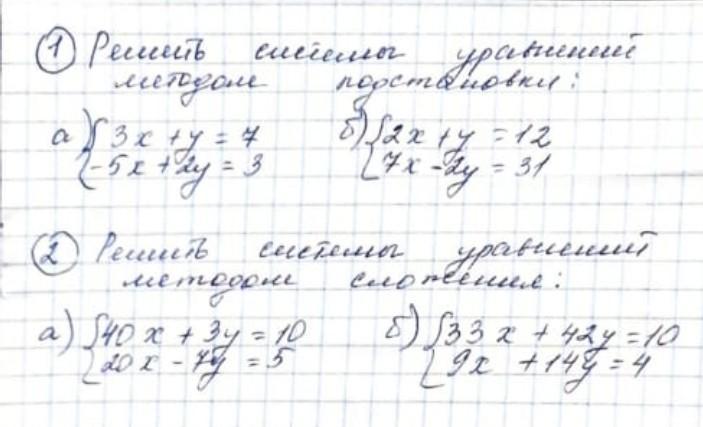 1 Решить системы уравнений
методом подстановки:
а) { 3x + y = 7 б) { 2x + y = 12
-5x + 2y = 3 7x - 2y = 31
2 Решить системы уравнений
методом сложения:
а) { 40x + 3y = 10 б) { 33x + 42y = 10
20x - 7y = 5 9x + 14y = 4